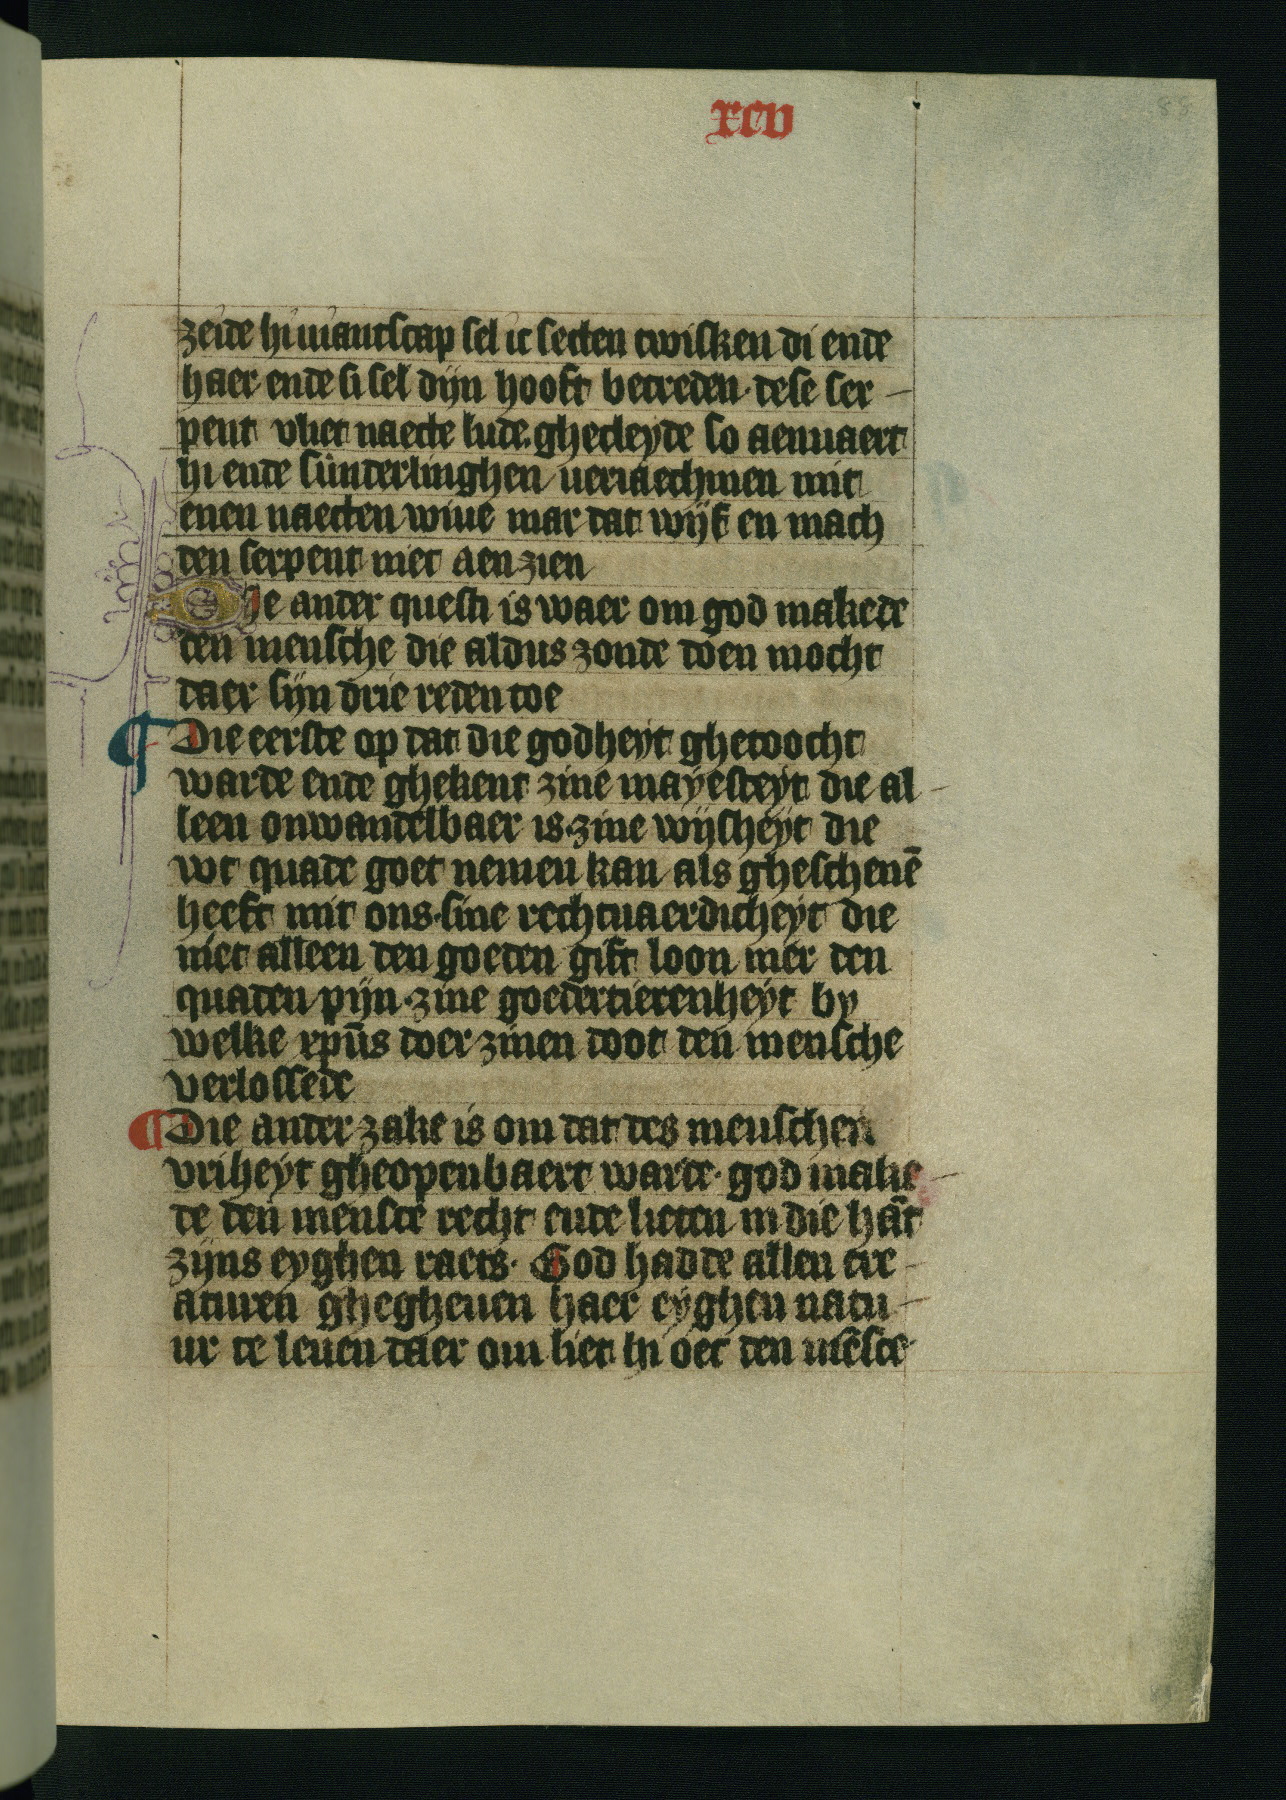 xcv
88
zeide hi viiantscap sel ic setten twisken di ende
haer ende si sel dijn hooft betreden · dese ser-
pent vliet naecte lude · ghecleyde so aenuaert
hi ende sunderlinghen veriaechmen mit
enen naecten wiue mar dat wijf en mach
den serpent niet aen zien
Die ander questi is waer om god makede
den mensche die aldus zonde doen mocht
daer sijn drie reden toe
¶ Die eerste op dat die godheyt ghetoocht
warde ende ghekent zine mayesteyt die al-
leen onwandelbaer is · zine wijsheyt die
wt quade goet nemen kan als gheschenē
heeft mit ons · sine rechtuaerdicheyt die
niet alleen den goeden gift loon mer den
quaden pijn · zine goedertierenheyt by
welke xpūs doer zinen doot den mensche
verlossede
¶ Die ander zake is om dat des menschen
vriheyt gheopenbaert warde · god make-
de den mensce recht ende lieten in die hāt
zijns eyghen raets · God hadde allen cre-
aturen ghegheuen haer eyghen natu-
ur te leuen daer om liet hi oec den mēsce